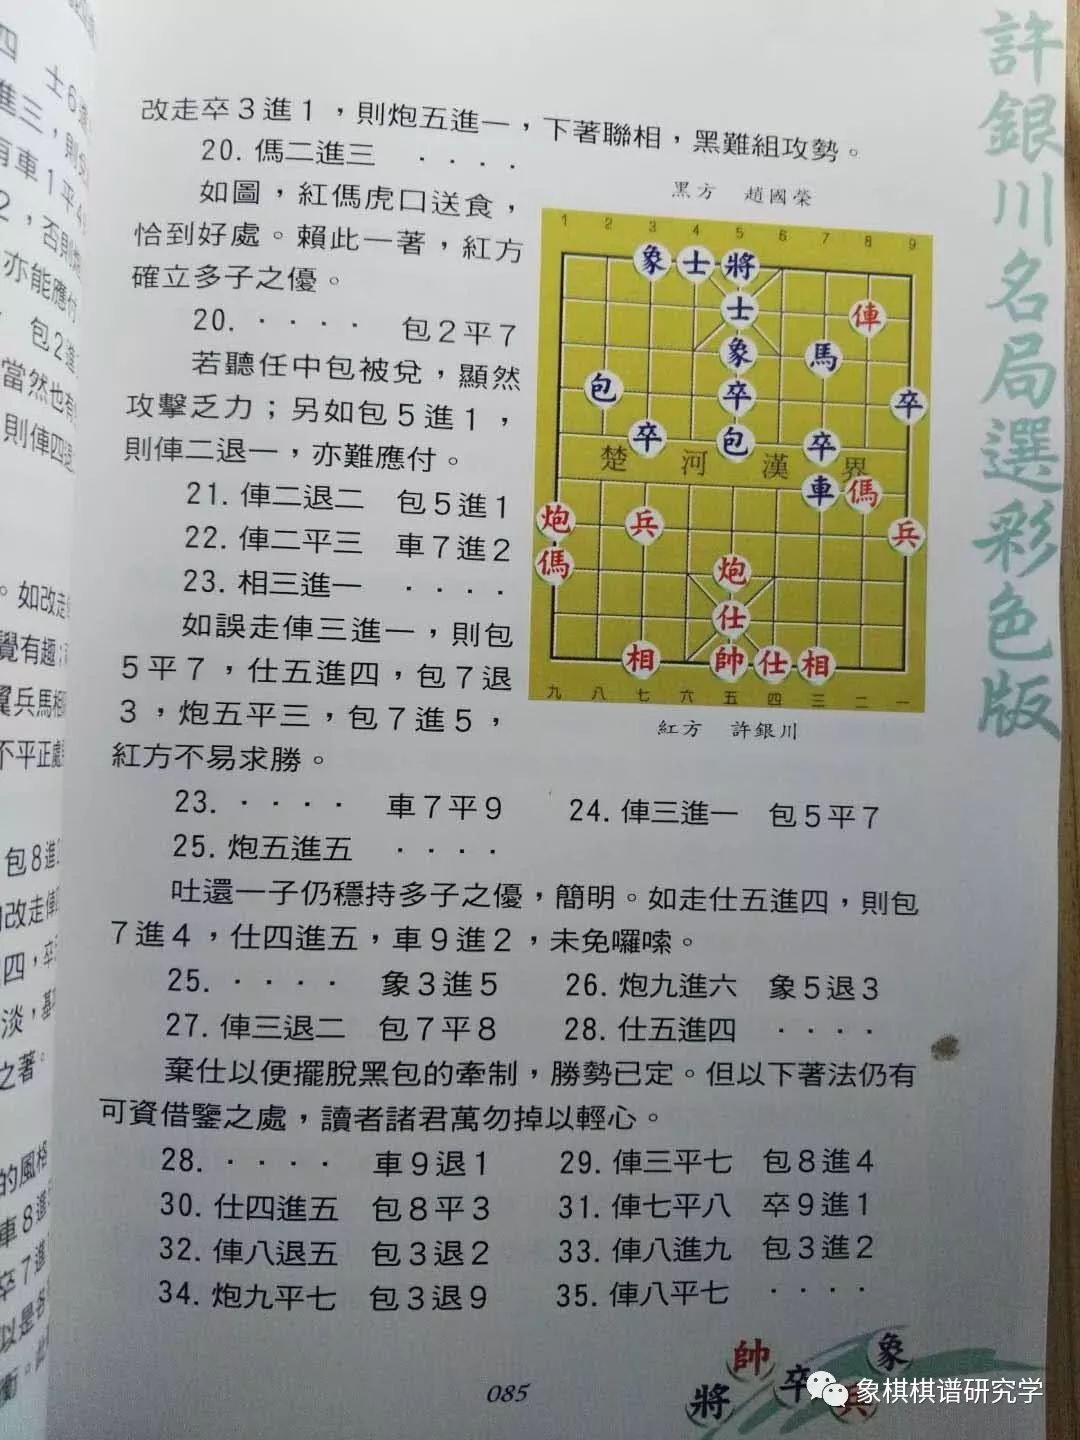 改走卒3進1，則炮五進一，下著聯相，黑難組攻勢。
20. 傌二進三 ····
如圖，紅傌虎口送食，
恰到好處。賴此一著，紅方
確立多子之優。
20. ···· 包2平7
若聽任中包被兌，顯然
攻擊乏力；另如包5進1，
則俥二退一，亦難應付。
21. 俥二退二 包5進1
22. 俥二平三 車7進2
23. 相三進一 ····
如誤走俥三進一，則包
5平7，仕五進四，包7退
3，炮五平三，包7進5，
紅方不易求勝。
黑方 趙國榮
1 2 3 4 5 6 7 8 9
象 士 將
士 俥
象 馬
包 卒 卒
卒 包 卒
楚 河 漢 界
車 傌
炮 兵 兵
傌 炮
仕
相 帥 仕 相
九 八 七 六 五 四 三 二 一
紅方 許銀川
23. ···· 車7平9 24. 俥三進一 包5平7
25. 炮五進五 ····
吐還一子仍穩持多子之優，簡明。如走仕五進四，則包
7進4，仕四進五，車9進2，未免囉嗦。
25. ···· 象3進5 26. 炮九進六 象5退3
27. 俥三退二 包7平8 28. 仕五進四 ····
棄仕以便擺脫黑包的牽制，勝勢已定。但以下著法仍有
可資借鑒之處，讀者諸君萬勿掉以輕心。
28. ···· 車9退1 29. 俥三平七 包8進4
30. 仕四進五 包8平3 31. 俥七平八 卒9進1
32. 俥八退五 包3退2 33. 俥八進九 包3進2
34. 炮九平七 包3退9 35. 俥八平七 ····
085
許銀川名局選彩色版
將 帥 卒 兵 象
象棋棋谱研究学
四 士6進
進三，則
有車1平4
2，否則炮
亦能應付
包2進
當然也有
則俥四退
。如改走
覺有趣；
翼兵馬相
不平正處
包8進
改走俥
四，卒
淡，基
之著。
的風格
車8進
卒7進
以是各
衡。